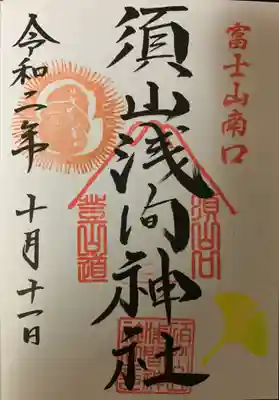 富士山南口
須山浅間神社
須山口
登山道
令和二年 十月十一日